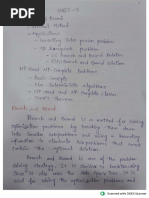 UNIT-5
Branch and Bound
- General Method
- Applications
- Travelling Sales person problem
- 0/1 knapsack problem
- LC Branch and Bound solution
- FIFO Branch and Bound solution
NP Hard and NP-Complete problems
- Basic concepts
- Non deterministic algorithms
- NP Hard and NP complete classes
Branch and Bound
Branch and Bound is a method for solving
optimization problems by breaking them down
into smaller sub problems and using a bounding
function to eliminate sub problems that cannot
contain the optimal solution.
Branch and Bound is one of the problem
solving strategy. It is similar to
used for solving the optimization problems and
Scanned with OKEN Scanner